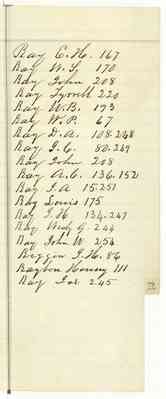 Ray C. H. 167
Ray W. G. 170
Ray John 208
Ray Tyrrell 220
Ray W. B. 193
Ray W. P. 67
Ray D. A. 108.248
Ray J. C. 80.249
Ray John 208
Ray A. C. 136.152
Ray J. A 15.251
Ray Louis 175
Ray J. H. 134.247
Ray 244
Ray John W 254
J. H. 86
Henry 111
Ray 245